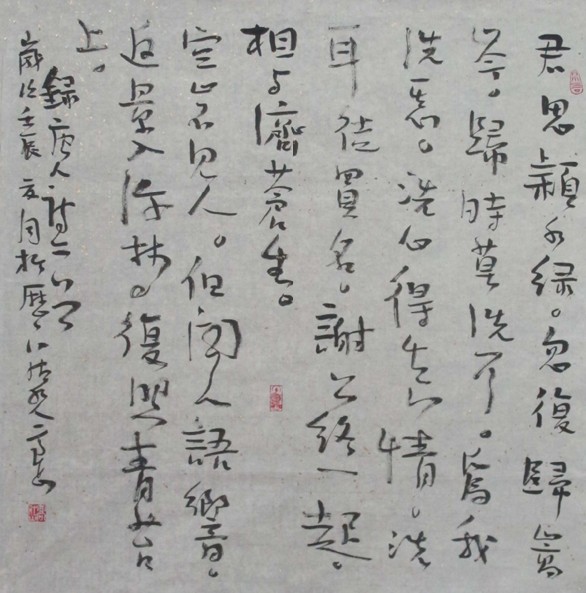 君思潁水緑。忽復歸嵩
岑。歸時莫洗耳。爲我
洗其心。洗心得真情。洗
耳徒買名。謝公終一起。
相与濟蒼生。
空山不見人。但聞人語響。
返景入深林。復照青苔
上。
錄唐人詩二首
歲次壬辰夏月於歷下